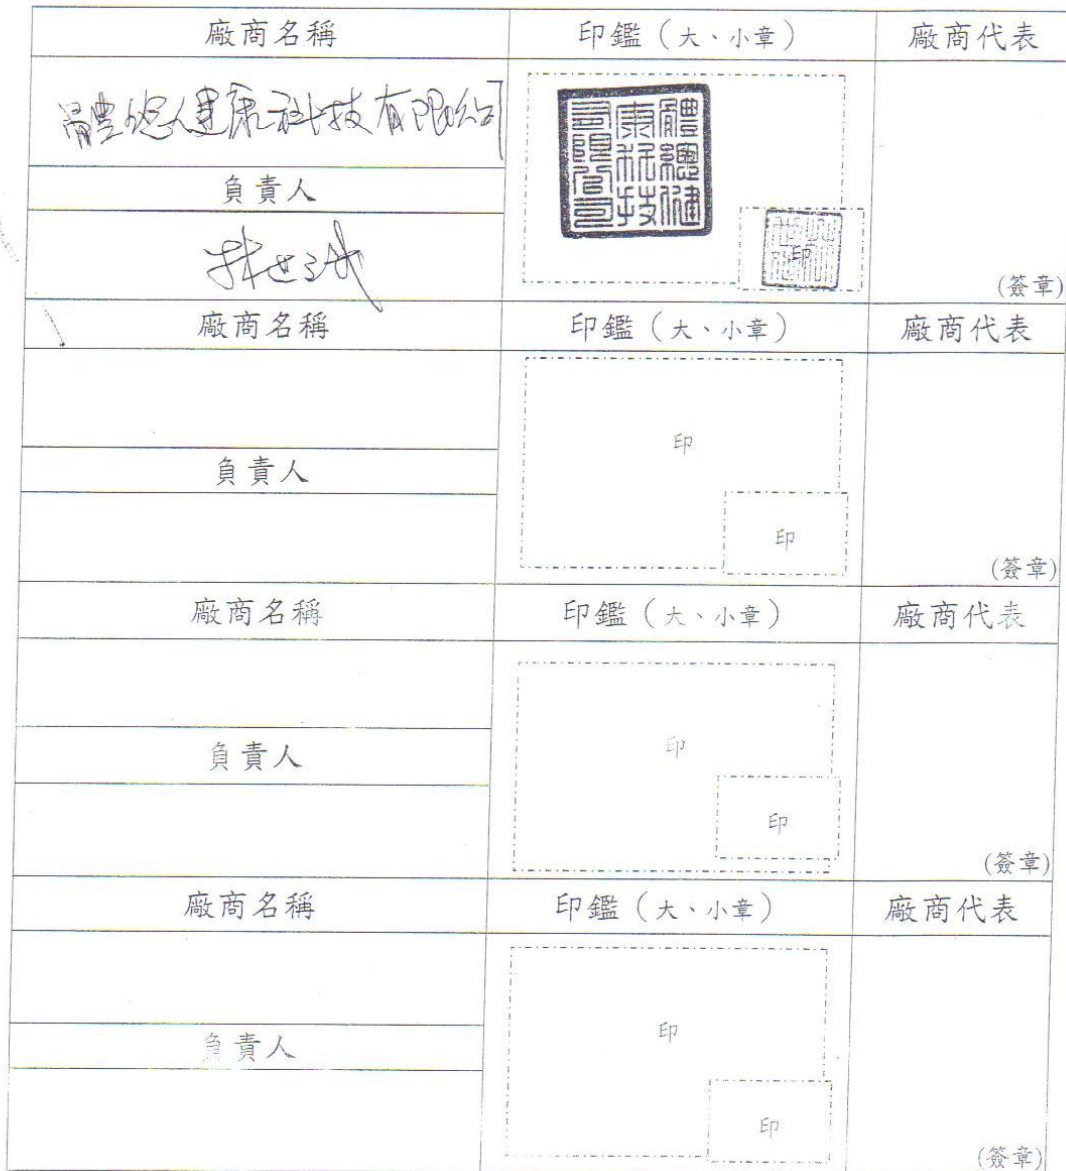 廠商名稱 印鑑（大、小章） 廠商代表
體總健康科技有限公司
體總健
康科技
有限公司
負責人
印
(簽章)
廠商名稱 印鑑（大、小章） 廠商代表
印
負責人
印
(簽章)
廠商名稱 印鑑（大、小章） 廠商代表
印
負責人
印
(簽章)
廠商名稱 印鑑（大、小章） 廠商代表
印
負責人
印
(簽章)